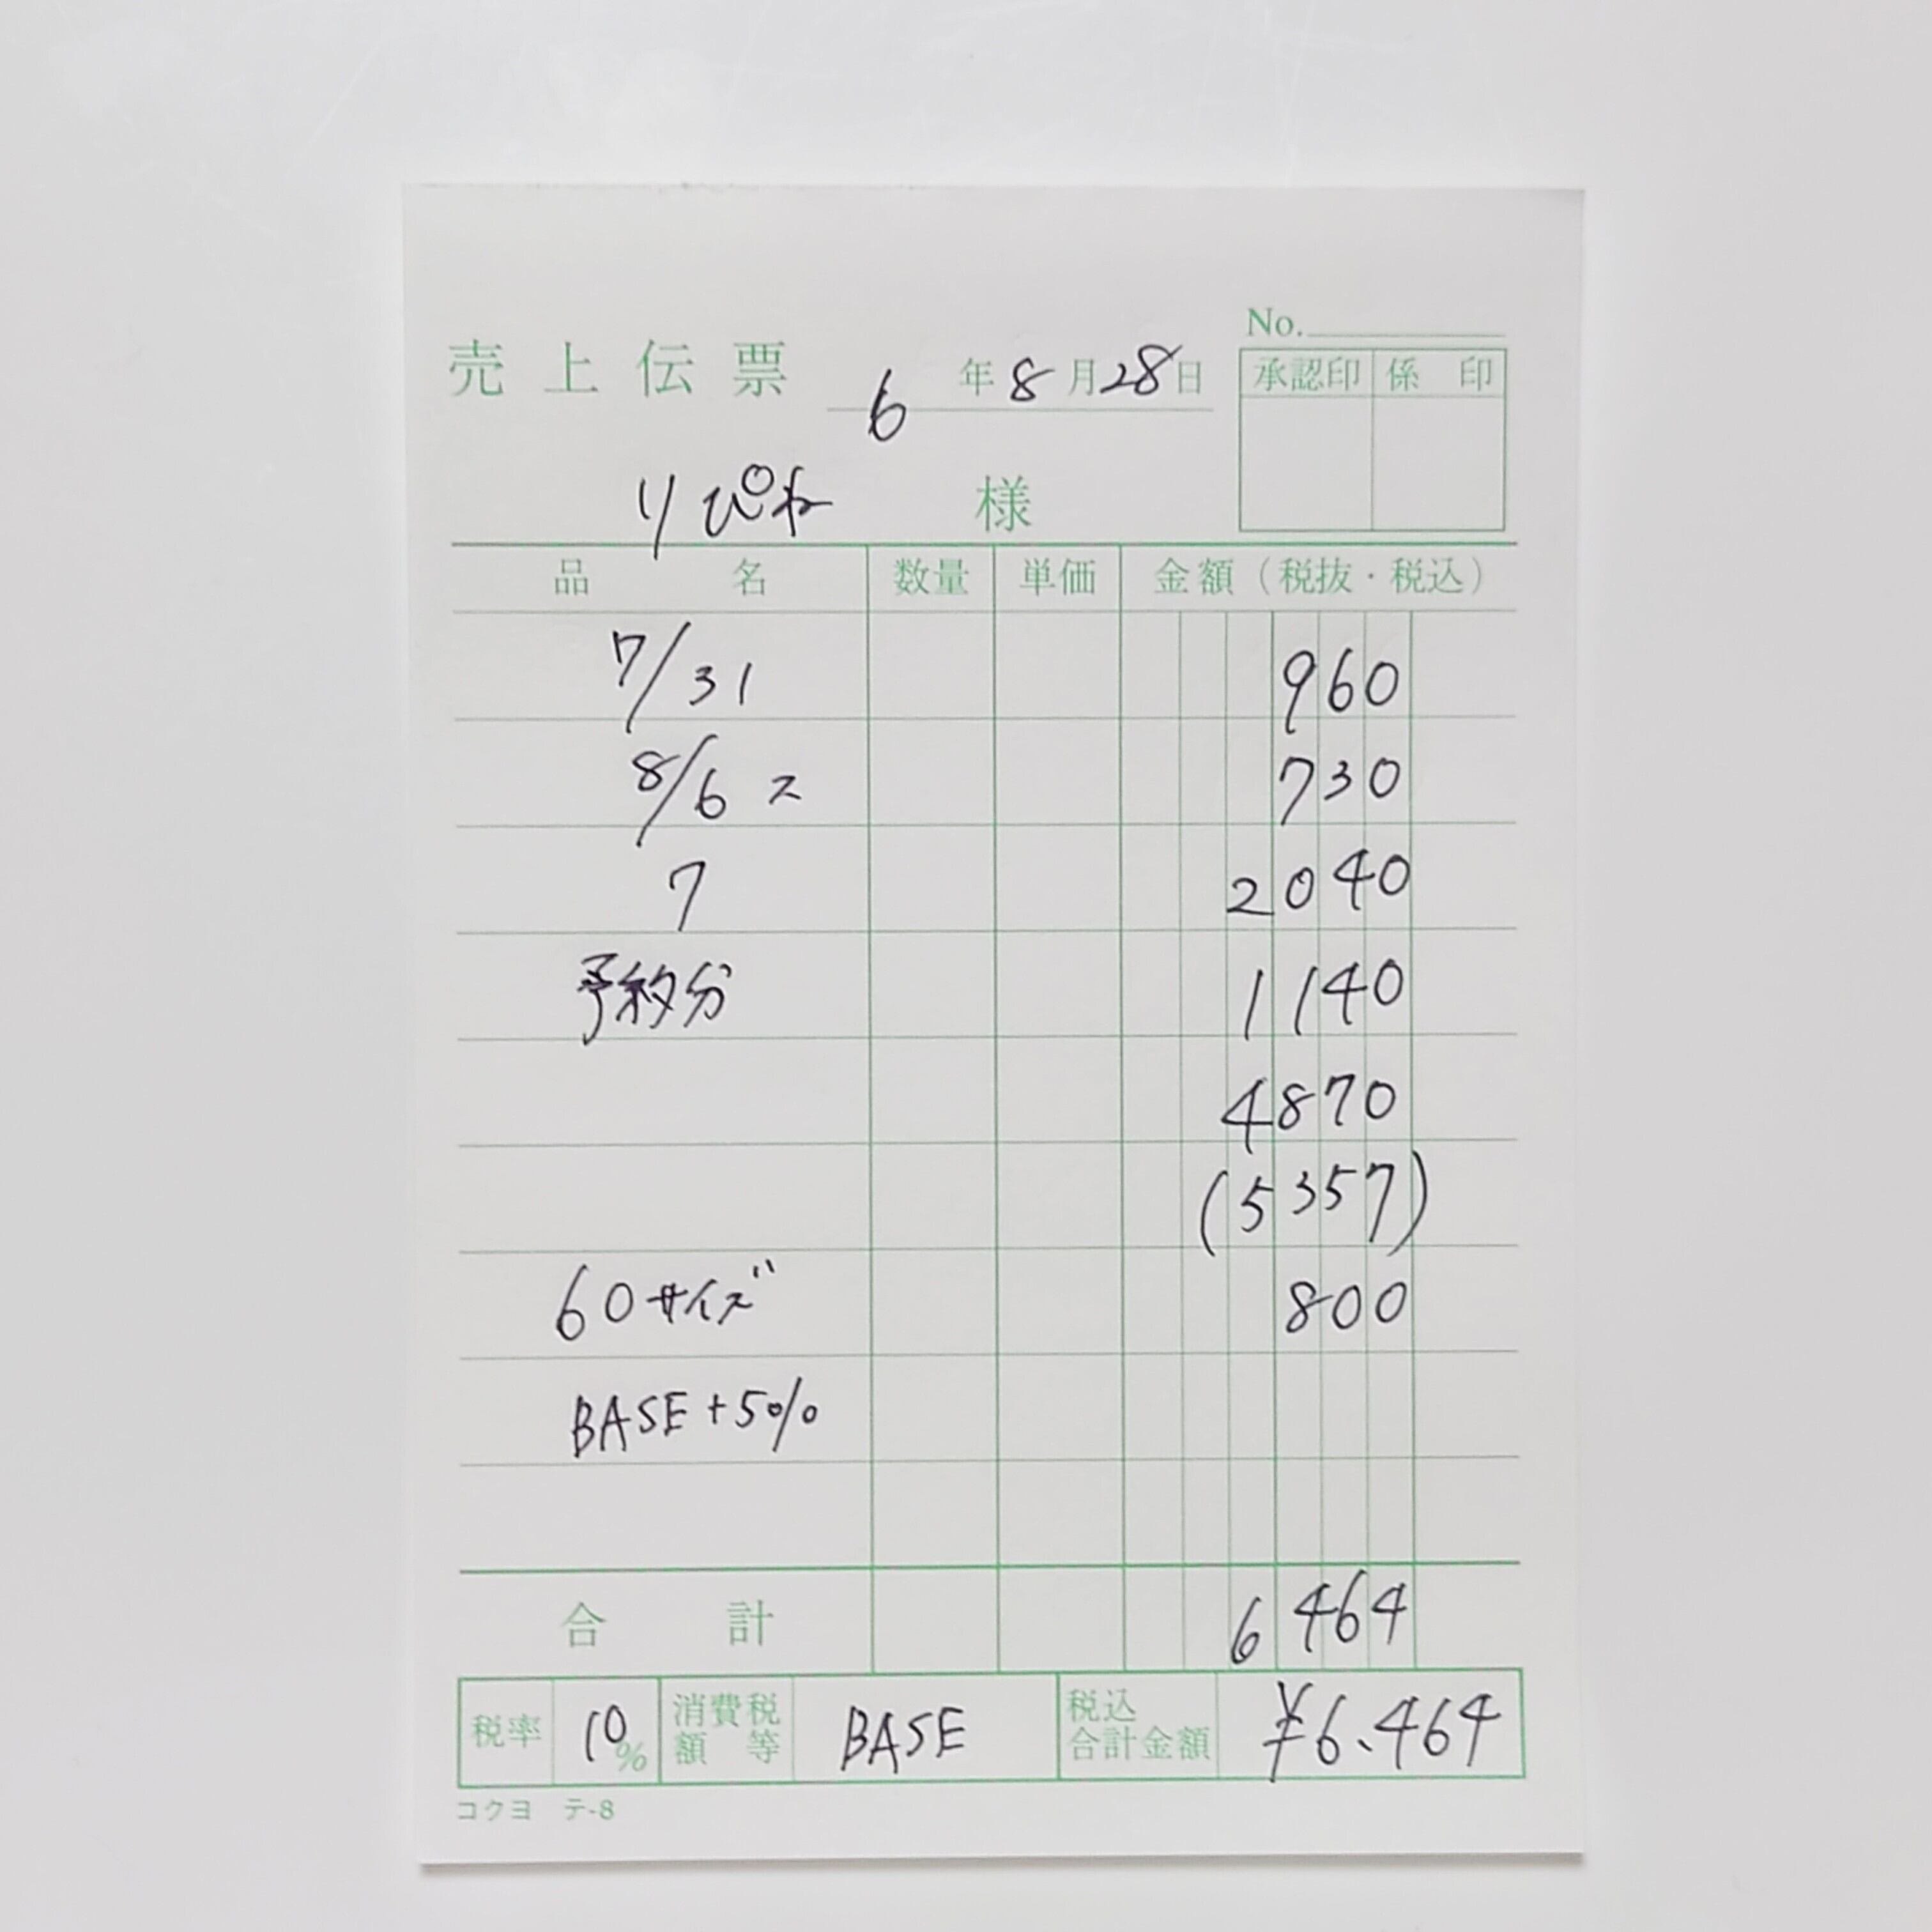 No.
売上伝票 6年8月28日
承認印 係印
りぴね 様
品名 数量 単価 金額（税抜・税込）
7/31 960
8/6 ス 730
7 2040
予約分 1140
4870
(5357)
60サイズ 800
BASE+5%
合計 6464
税率 10% 消費税額等 BASE 税込合計金額 ¥6.464
コクヨ テ-8